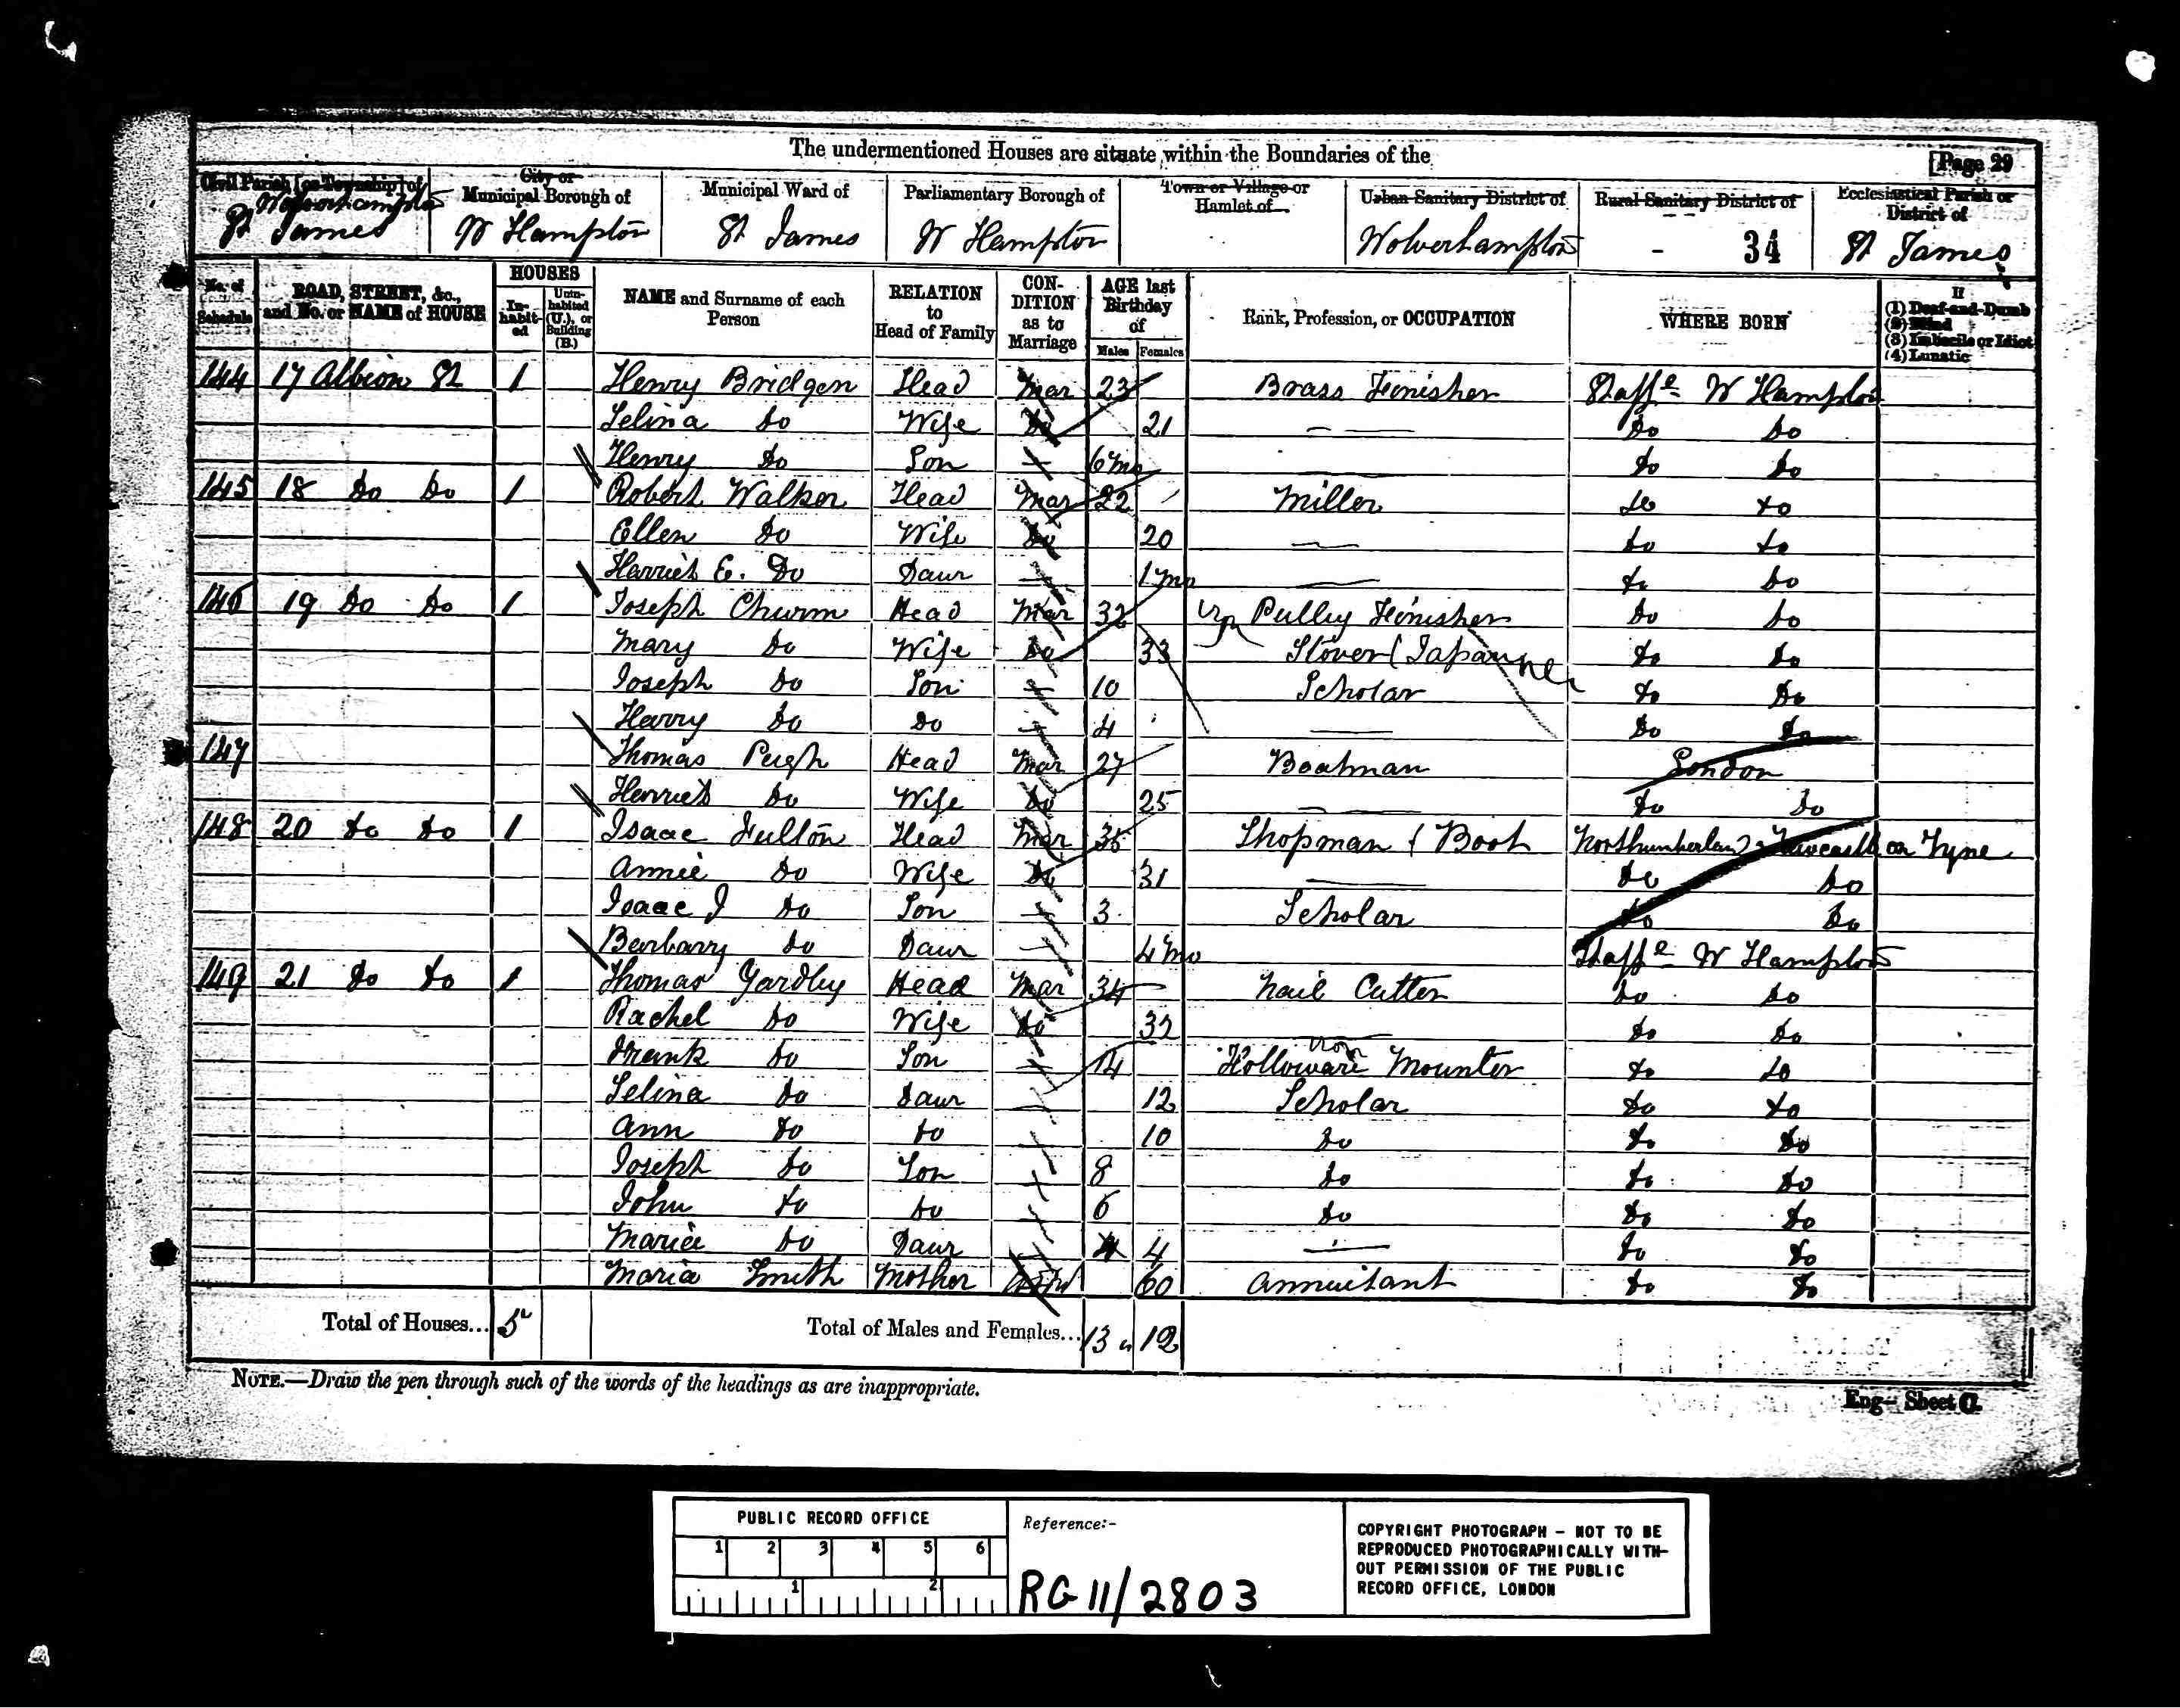 The undermentioned Houses are situate within the Boundaries of the
[Page 29
Civil Parish [or Township] of City or Municipal Borough of Municipal Ward of Parliamentary Borough of Town or Village or Hamlet of Urban Sanitary District of Rural Sanitary District of Ecclesiastical Parish or District of
Wolverhampton
St James W Hampton St James W Hampton Wolverhampton - 34 St James
No. of Schedule ROAD, STREET, &c., and No. or NAME of HOUSE HOUSES In-habit-ed Unin-habited (U.), or Building (B.) NAME and Surname of each Person RELATION to Head of Family CON-DITION as to Marriage AGE last Birthday of Males Females Rank, Profession, or OCCUPATION WHERE BORN If (1) Deaf-and-Dumb (2) Blind (3) Imbecile or Idiot (4) Lunatic
144 17 Albion St 1 Henry Bridgen Head Mar 23 Brass Finisher Staffe W Hampton
Selina Do Wife Do 21 Do Do
Henry Do Son 6 Mo Do Do
145 18 Do Do 1 Robert Walker Head Mar 22 Miller Do Do
Ellen Do Wife Do 20 Do Do
Harriet E. Do Daur 1 Mo Do Do
146 19 Do Do 1 Joseph Churm Head Mar 32 Pulley Finisher Do Do
Mary Do Wife Do 33 Stover (Japanner Do Do
Joseph Do Son 10 Scholar Do Do
Harry Do Do 4 Do Do
147 Thomas Pugh Head Mar 27 Boatman London
Harriet Do Wife Do 25 Do Do
148 20 Do Do 1 Isaac Fulton Head Mar 35 Shopman ( Boot Northumberland Newcastle on Tyne
Annie Do Wife Do 31 Do Do
Isaac J Do Son 3 Scholar Do Do
Barbary Do Daur 4 Mo Staffe W Hampton
149 21 Do Do 1 Thomas Yardley Head Mar 34 Nail Cutter Do Do
Rachel Do Wife Do 32 Do Do
Frank Do Son 14 Holloware Mounter Do Do
Selina Do Daur 12 Scholar Do Do
Ann Do Do 10 Do Do Do
Joseph Do Son 8 Do Do Do
John Do Do 6 Do Do Do
Maria Do Daur 4 Do Do
Maria Smith Mother 60 Annuitant Do Do
Total of Houses... 5 Total of Males and Females... 13 12
NOTE.—Draw the pen through such of the words of the headings as are inappropriate.
Eng—Sheet G.
PUBLIC RECORD OFFICE
1 2 3 4 5 6
1 2
Reference:-
RG 11/2803
COPYRIGHT PHOTOGRAPH - NOT TO BE
REPRODUCED PHOTOGRAPHICALLY WITH-
OUT PERMISSION OF THE PUBLIC
RECORD OFFICE, LONDON